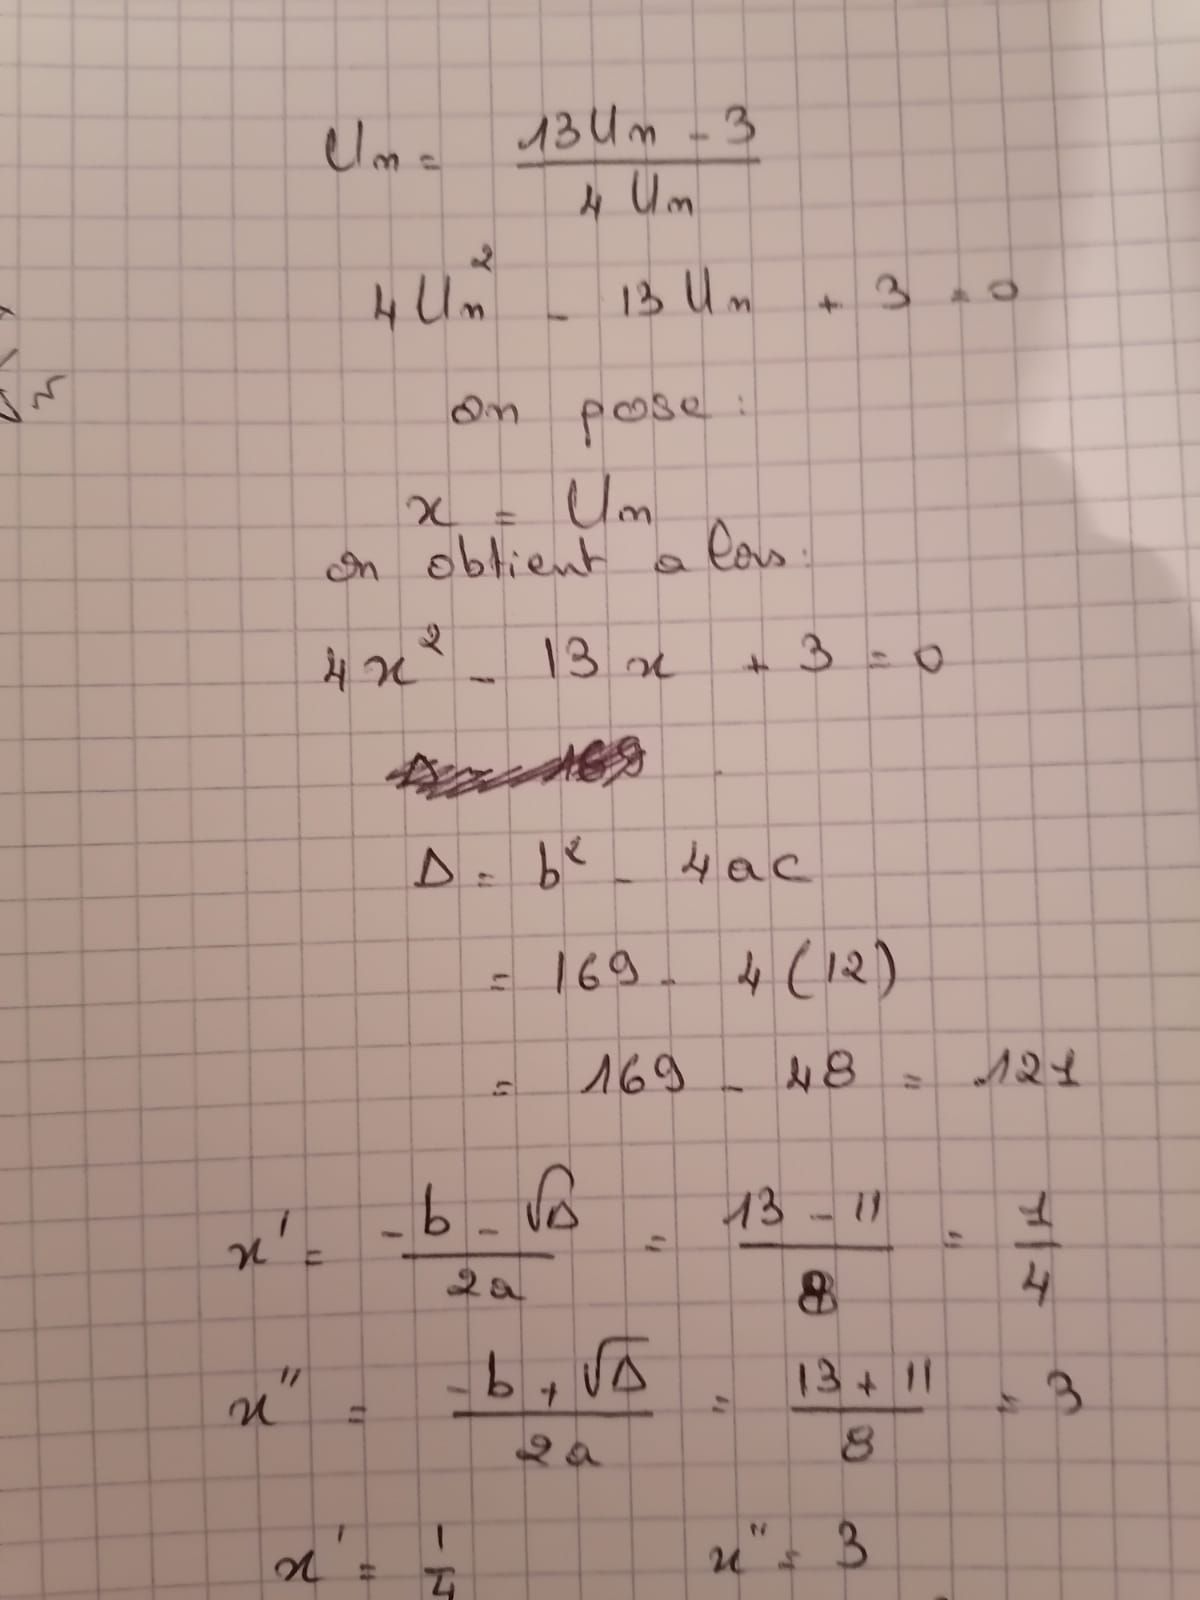 Un = (13Un - 3) / (4Un)
4Un² - 13Un + 3 = 0
on pose :
x = Un
on obtient alors :
4x² - 13x + 3 = 0
Δ = b² - 4ac
= 169 - 4(12)
= 169 - 48 = 121
x' = (-b - √Δ) / (2a) = (13 - 11) / 8 = 1/4
x'' = (-b + √Δ) / (2a) = (13 + 11) / 8 = 3
x' = 1/4 x'' = 3